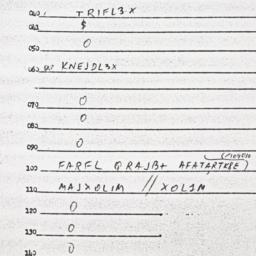 040. TRIFL3X
$
050. 0
KNEJDL3X
070 0
080 0
090 0
100 FARFL QRAJB+
110 MAJXOLIM // XOL1M
120 0
130 0
140 0